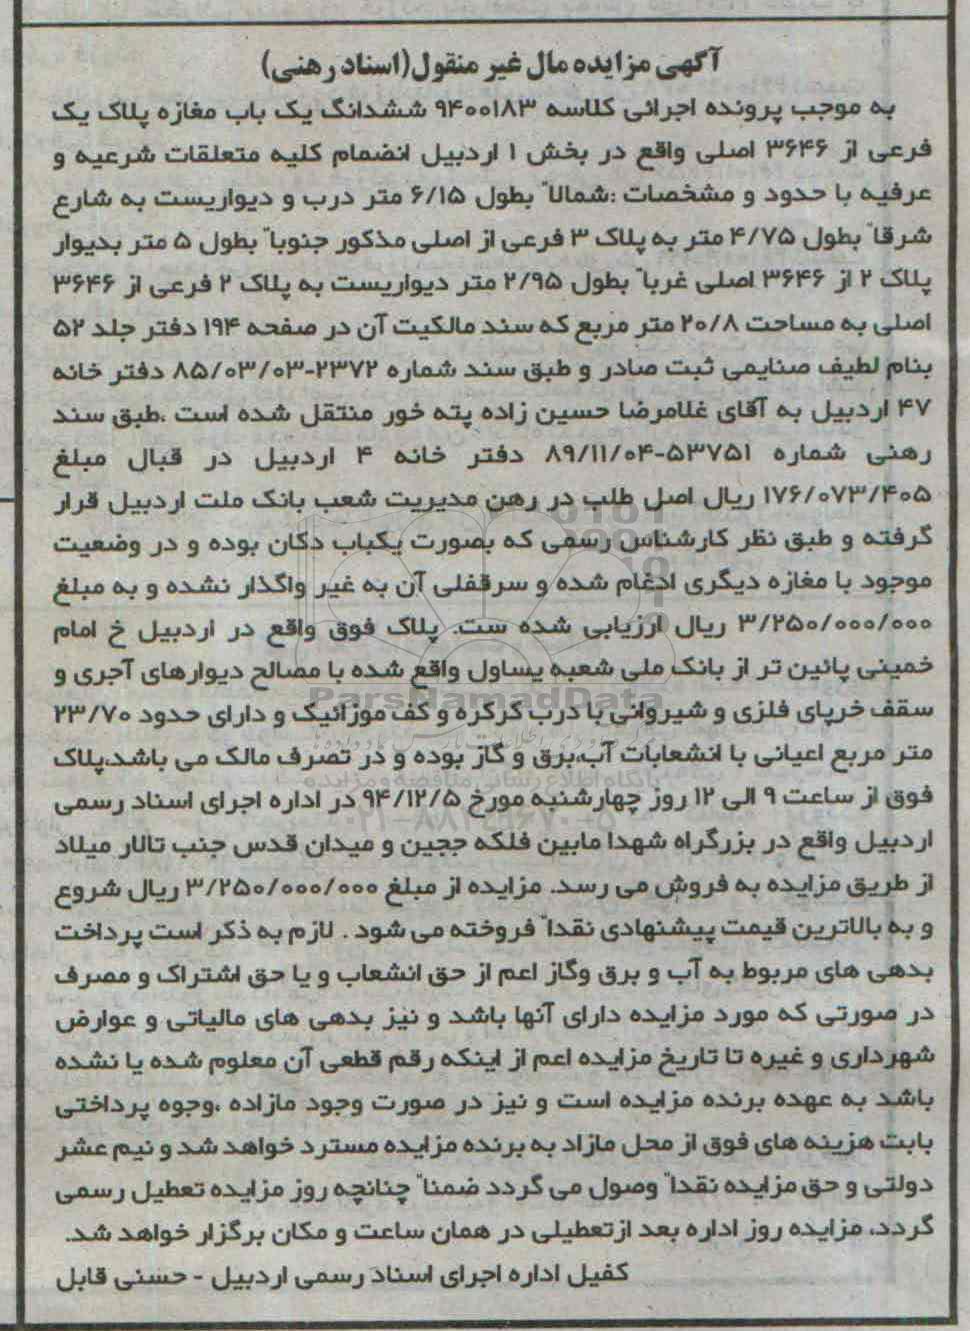 آگهی مزایده مال غیر منقول(اسناد رهنی)
به موجب پرونده اجرائی کلاسه ۹۴۰۰۱۸۳ ششدانگ یک باب مغازه پلاک یک
فرعی از ۳۶۴۶ اصلی واقع در بخش ۱ اردبیل انضمام کلیه متعلقات شرعیه و
عرفیه با حدود و مشخصات :شمالاً بطول ۶/۱۵ متر درب و دیواریست به شارع
شرقاً بطول ۴/۷۵ متر به پلاک ۳ فرعی از اصلی مذکور جنوباً بطول ۵ متر بدیوار
پلاک ۲ از ۳۶۴۶ اصلی غرباً بطول ۲/۹۵ متر دیواریست به پلاک ۲ فرعی از ۳۶۴۶
اصلی به مساحت ۲۰/۸ متر مربع که سند مالکیت آن در صفحه ۱۹۴ دفتر جلد ۵۲
بنام لطیف صنایمی ثبت صادر و طبق سند شماره ۲۳۷۲-۸۵/۰۳/۰۳ دفتر خانه
۴۷ اردبیل به آقای غلامرضا حسین زاده پته خور منتقل شده است ،طبق سند
رهنی شماره ۵۳۷۵۱-۸۹/۱۱/۰۴ دفتر خانه ۴ اردبیل در قبال مبلغ
۱۷۶/۰۷۳/۴۰۵ ریال اصل طلب در رهن مدیریت شعب بانک ملت اردبیل قرار
گرفته و طبق نظر کارشناس رسمی که بصورت یکباب دکان بوده و در وضعیت
موجود با مغازه دیگری ادغام شده و سرقفلی آن به غیر واگذار نشده و به مبلغ
۳/۲۵۰/۰۰۰/۰۰۰ ریال ارزیابی شده ست. پلاک فوق واقع در اردبیل خ امام
خمینی پائین تر از بانک ملی شعبه یساول واقع شده با مصالح دیوارهای آجری و
سقف خرپای فلزی و شیروانی با درب کرکره و کف موزائیک و دارای حدود ۲۳/۷۰
متر مربع اعیانی با انشعابات آب،برق و گاز بوده و در تصرف مالک می باشد،پلاک
فوق از ساعت ۹ الی ۱۲ روز چهارشنبه مورخ ۹۴/۱۲/۵ در اداره اجرای اسناد رسمی
اردبیل واقع در بزرگراه شهدا مابین فلکه ججین و میدان قدس جنب تالار میلاد
از طریق مزایده به فروش می رسد. مزایده از مبلغ ۳/۲۵۰/۰۰۰/۰۰۰ ریال شروع
و به بالاترین قیمت پیشنهادی نقداً فروخته می شود . لازم به ذکر است پرداخت
بدهی های مربوط به آب و برق وگاز اعم از حق انشعاب و یا حق اشتراک و مصرف
در صورتی که مورد مزایده دارای آنها باشد و نیز بدهی های مالیاتی و عوارض
شهرداری و غیره تا تاریخ مزایده اعم از اینکه رقم قطعی آن معلوم شده یا نشده
باشد به عهده برنده مزایده است و نیز در صورت وجود مازاده ،وجوه پرداختی
بابت هزینه های فوق از محل مازاد به برنده مزایده مسترد خواهد شد و نیم عشر
دولتی و حق مزایده نقداً وصول می گردد ضمناً چنانچه روز مزایده تعطیل رسمی
گردد، مزایده روز اداره بعد ازتعطیلی در همان ساعت و مکان برگزار خواهد شد.
کفیل اداره اجرای اسناد رسمی اردبیل - حسنی قابل
ParsNamadData
پایگاه اطلاع رسانی مناقصه و مزایده